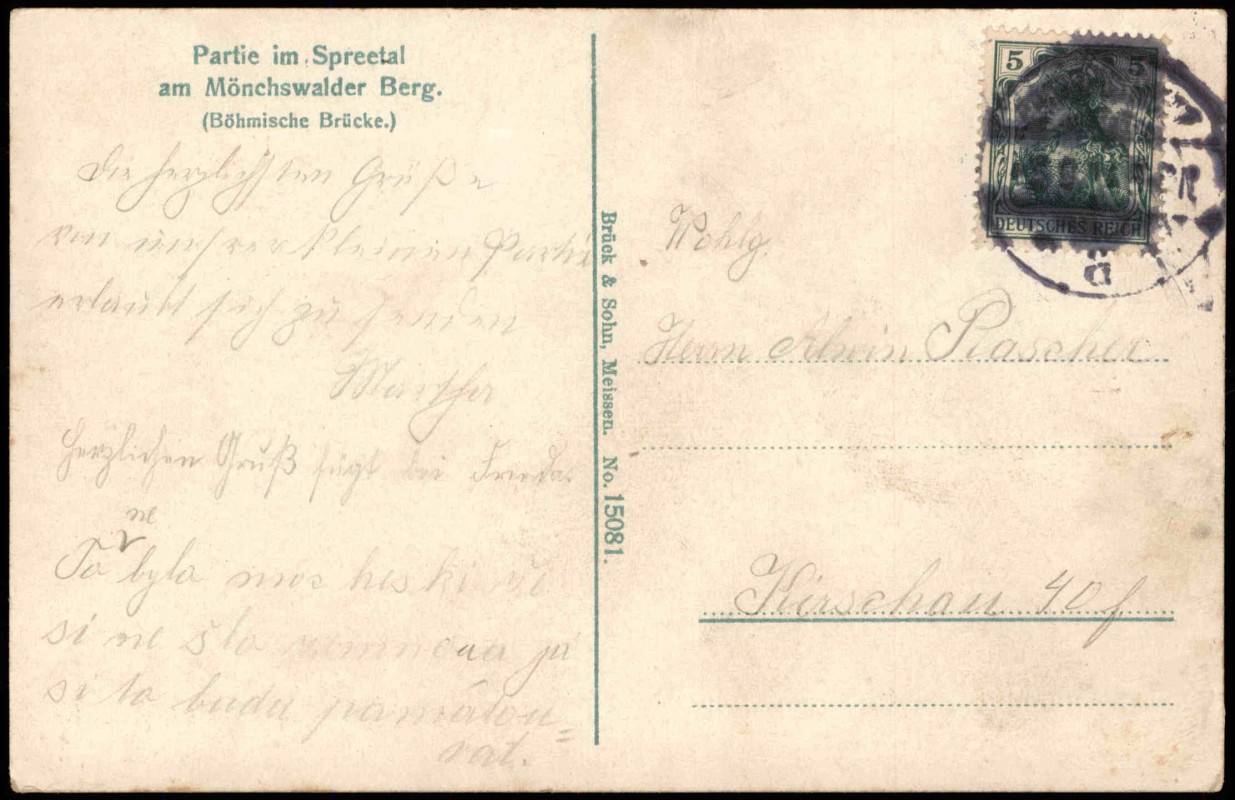 Partie im Spreetal
am Mönchswalder Berg.
(Böhmische Brücke.)
Die herzlichsten Grüße
von unsrer kleinen Partie
erlaubt sich zu senden
Martha
Herzlichen Gruß fügt bei Frieda.
ne
To byla moc heski
si ne šla ja
si to budu pamatou=
vat.
Brück & Sohn, Meissen. No. 15081.
5 5
DEUTSCHES REICH
a
Wohlg.
Herrn Alwin Rascher
Kirschau 40 f